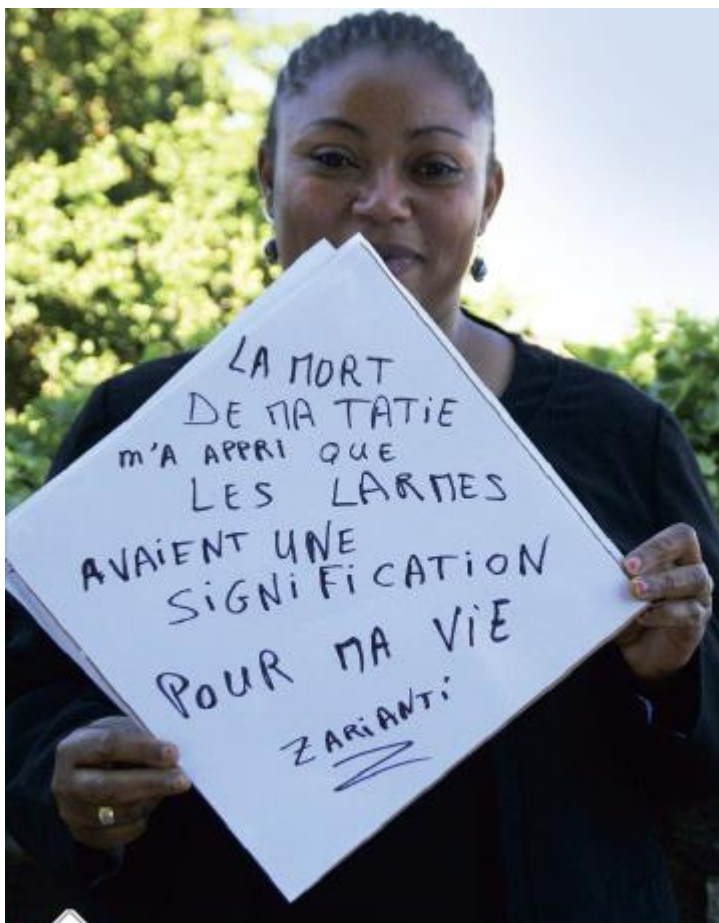 LA MORT
DE MA TATiE
m'A APPRI QUE
LES LARMES
AVAiENT UNE
SiGNiFiCATiON
POUR MA ViE
ZARiANTi